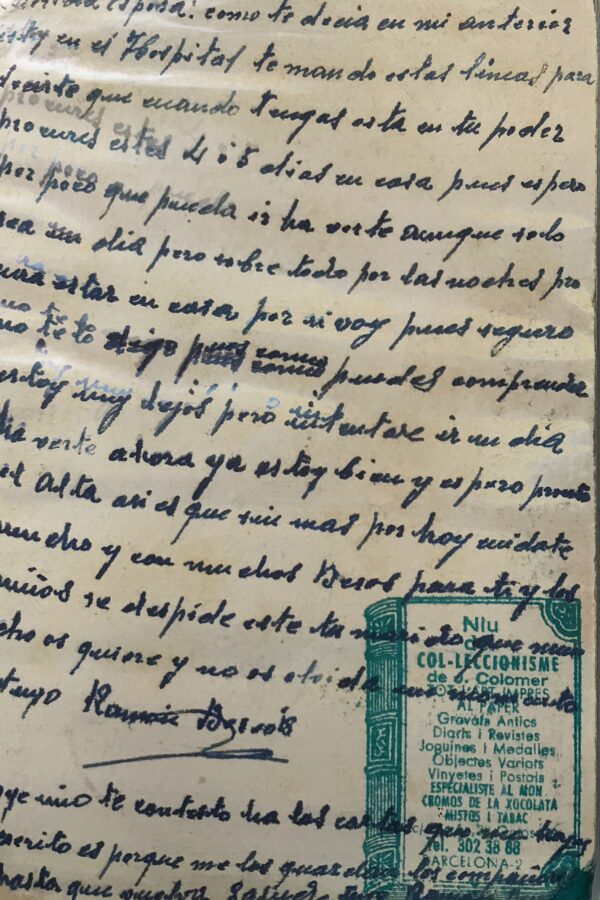 esposa: como te decia en mi anterior
estoy en el Hospital te mando estas lineas para
decirte que cuando tengas esta en tu poder
procures estes 4 ó 5 dias en casa pues espero
por poco que pueda ir ha verte aunque solo
sea un dia pero sobre todo por las noches pro
cura estar en casa por si voy pues seguro
no te lo digo pues como puedes comprender
estoy muy lejos pero intentare ir un dia
ha verte ahora ya estoy bien y espero pronto
el Alta asi es que sin mas por hoy cuidate
mucho y con muchos Besos para ti y los
niños se despide este tu marido que mu
cho os quiere y no os olvida un momento
tuyo Ramón
Oye si no te contesto ha las cartas que me hayas
escrito es porque me las guardan los compañeros
hasta que vuelva
Niu
COL·LECCIONISME
de J. Colomer
TOT L'ART IMPRES
AL PAPER
Gravats Antics
Diaris i Revistes
Joguines i Medalles
Objectes Variats
Vinyetes i Postals
ESPECIALISTE AL MON
CROMOS DE LA XOCOLATA
MISTOS I TABAC
Tel. 302 38 88
BARCELONA-2